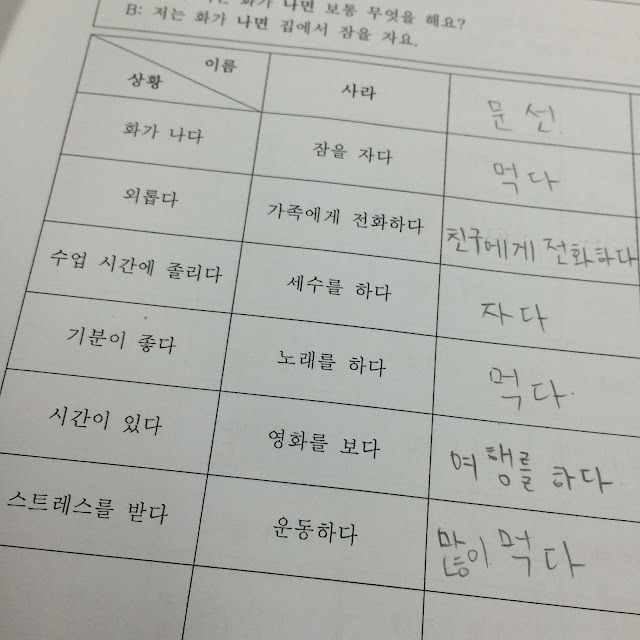 화가 나면 보통 무엇을 해요?
B: 저는 화가 나면 집에서 잠을 자요.
이름
상황
사라
문선
화가 나다
잠을 자다
먹다
외롭다
가족에게 전화하다
친구에게 전화하다
수업 시간에 졸리다
세수를 하다
자다
기분이 좋다
노래를 하다
먹다.
시간이 있다
영화를 보다
여행를 하다
스트레스를 받다
운동하다
많이 먹다